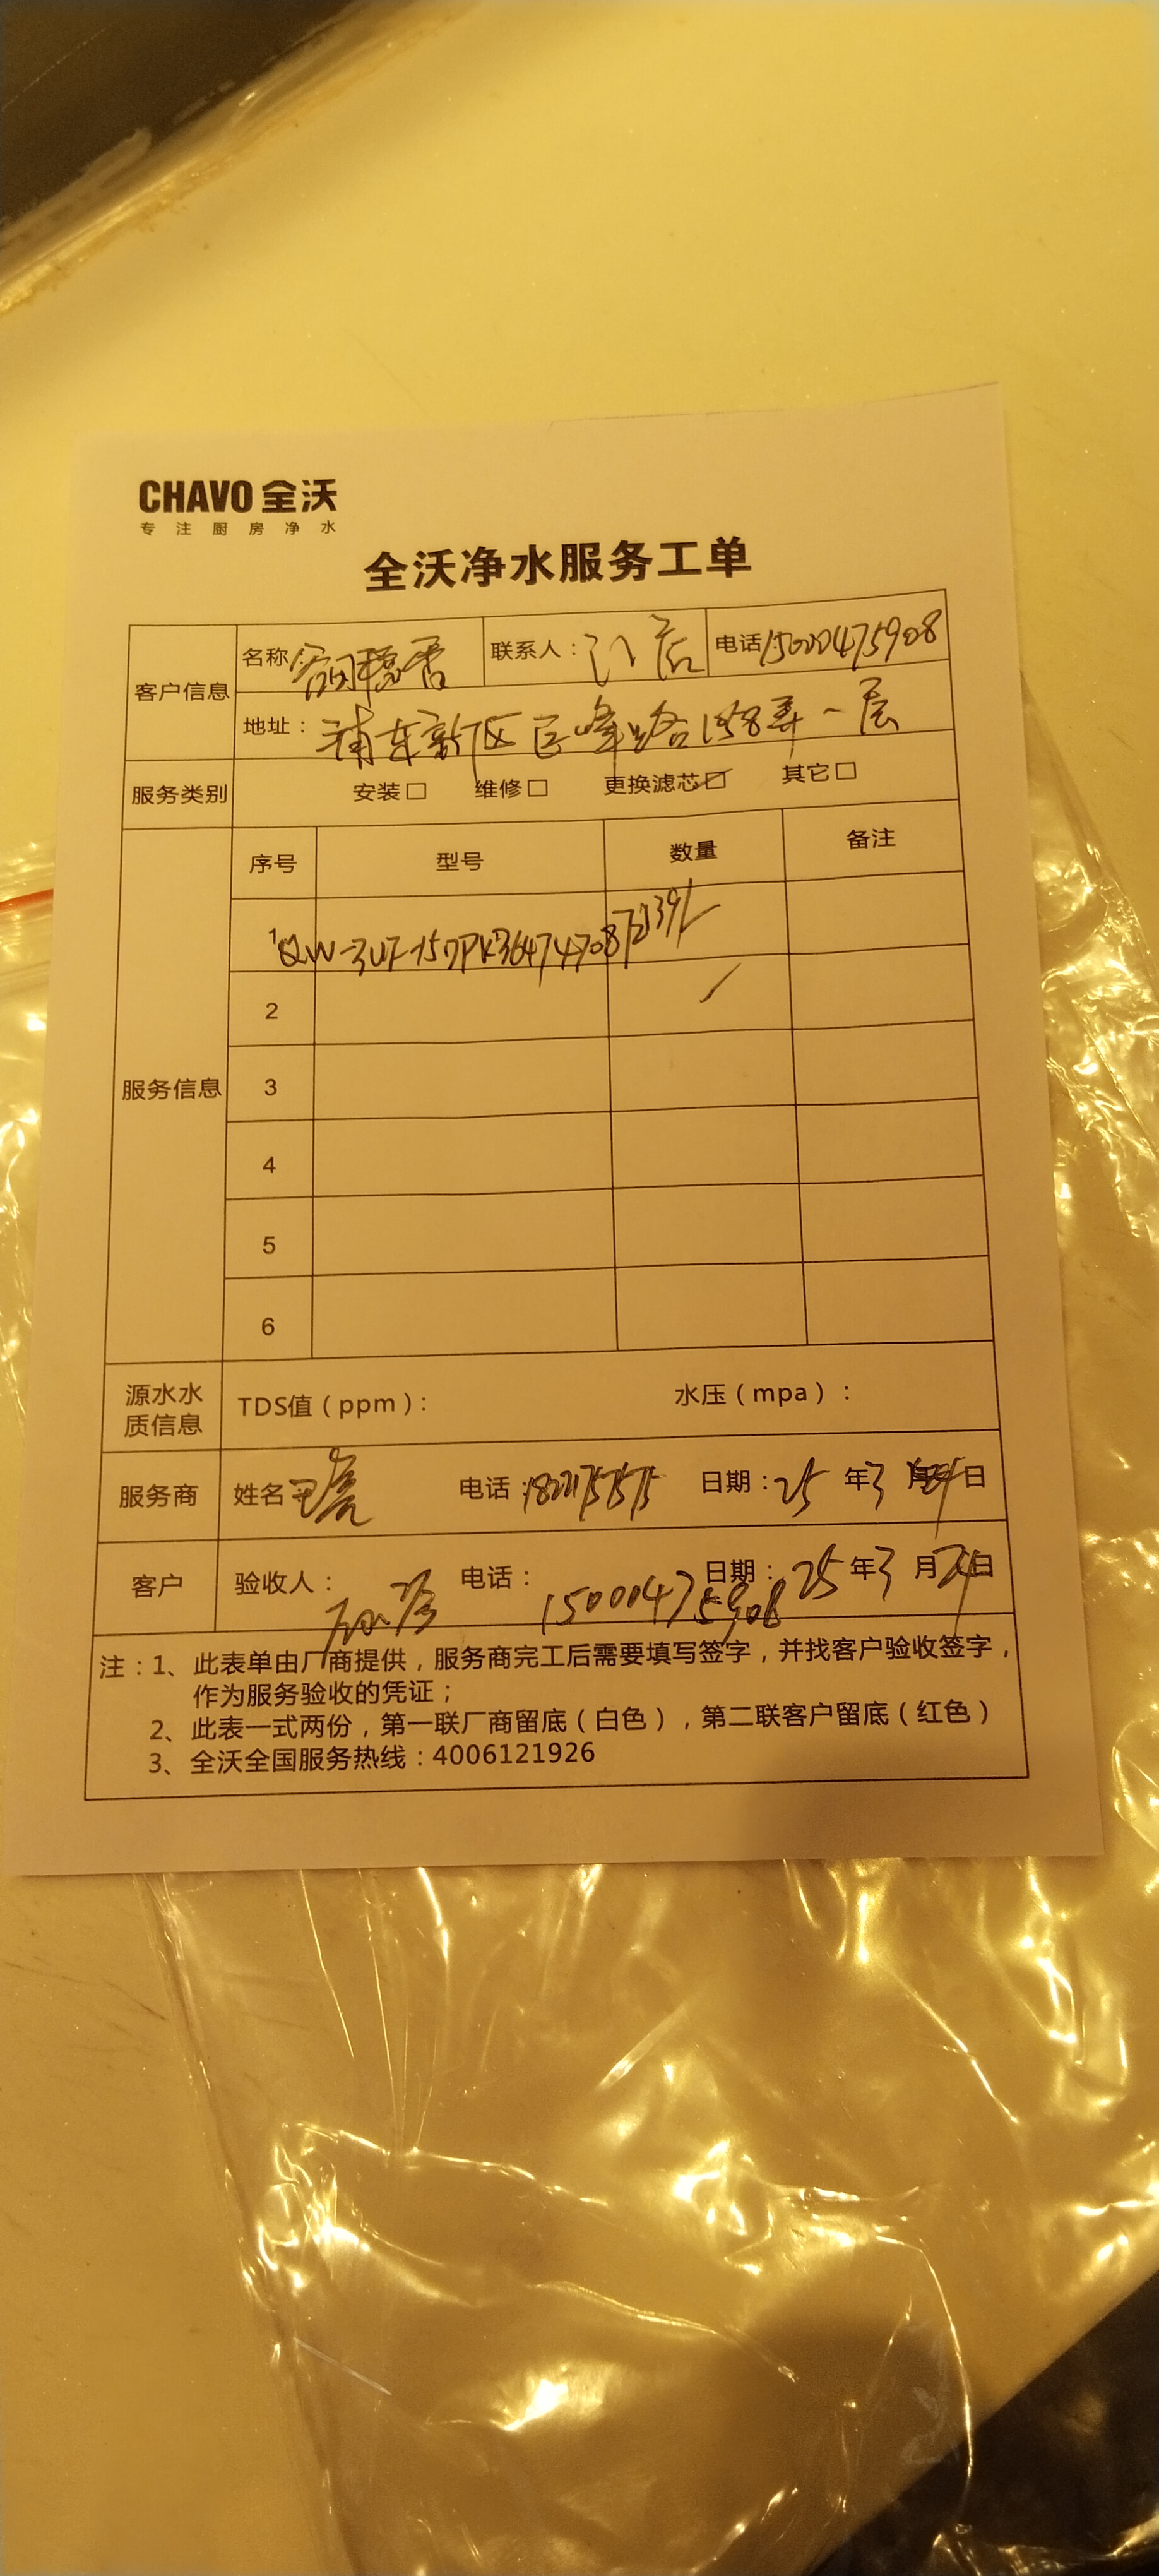 CHAVO 全沃
专注厨房净水
全沃净水服务工单
客户信息
名称
联系人：
电话15000475908
地址：浦东新区巨峰路158弄一层
服务类别
安装□ 维修□ 更换滤芯☑ 其它□
服务信息
序号 型号 数量 备注
1
2
3
4
5
6
源水水质信息
TDS值（ppm）： 水压（mpa）：
服务商 姓名 电话： 日期：25年3月 日
客户 验收人： 电话：15000475908 日期：25年3月24日
注：1、此表单由厂商提供，服务商完工后需要填写签字，并找客户验收签字，
作为服务验收的凭证；
2、此表一式两份，第一联厂商留底（白色），第二联客户留底（红色）
3、全沃全国服务热线：4006121926